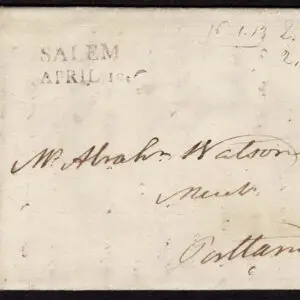 SALEM
APRIL
Mr. Abrahm Watson
Merch.
Portlan